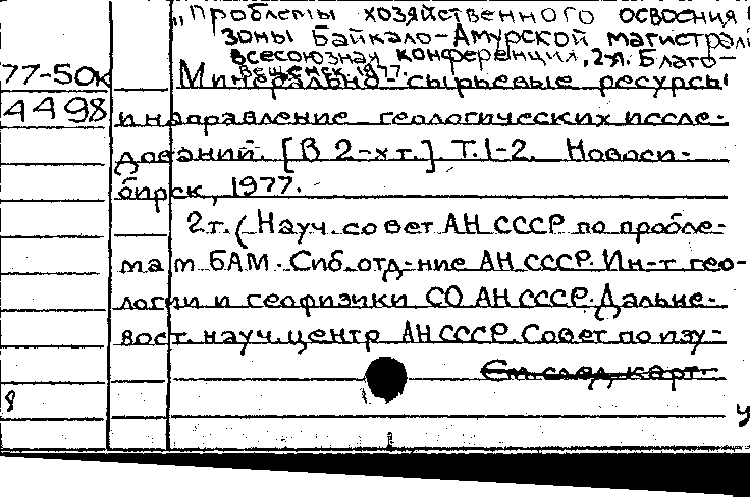 „Проблемы хозяйственного освоения
зоны Байкало-Амурской магистрали
всесоюзная конференция, 2-я. Благо-
вещенск. 1977.
77-50к Минерально-сырьевые ресурсы
4498 и направление геологических иссле-
дований. [В 2-х т.]. Т.1-2. Новоси-
бирск, 1977.
2т. (Науч. совет АН СССР по пробле-
мам БАМ. Сиб. отд-ние АН СССР. Ин-т гео-
логии и геофизики СО АН СССР. Дальне-
вост. науч. центр АН СССР. Совет по изу-
См. след. карт.
8
у